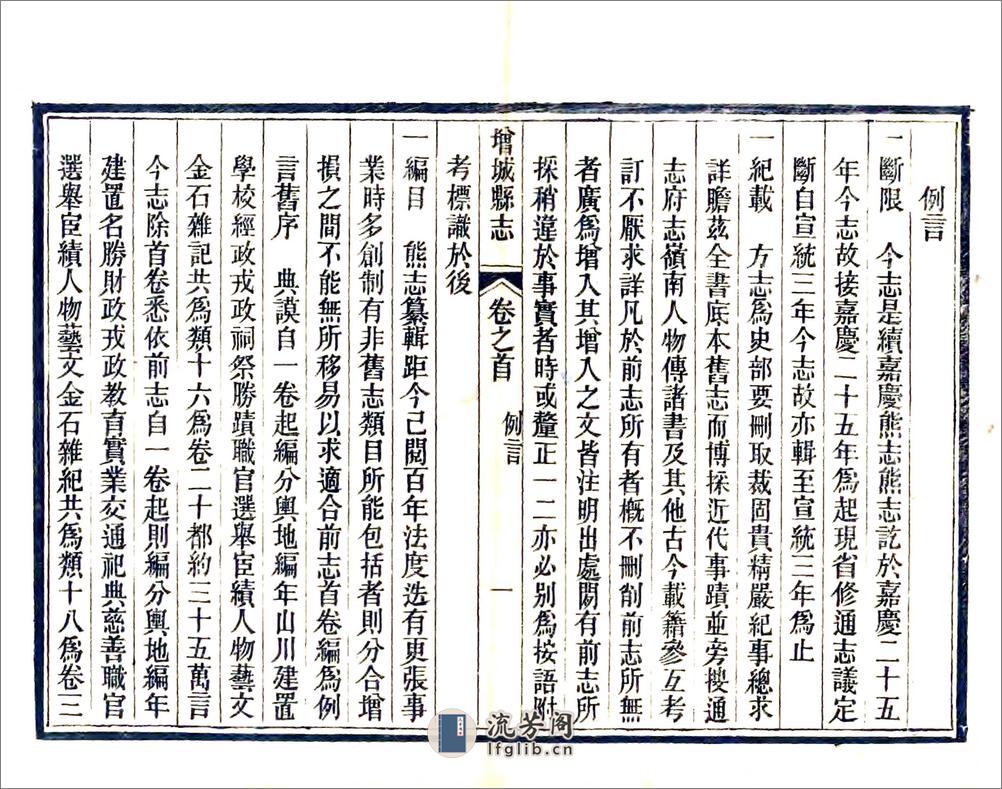 例言
一斷限　今志是續嘉慶熊志熊志訖於嘉慶二十五
年今志故接嘉慶二十五年爲起現省修通志議定
斷自宣統三年今志故亦輯至宣統三年爲止
一紀載　方志爲史部要刪取裁固貴精嚴紀事總求
詳贍茲全書底本舊志而博採近代事蹟並旁搜通
志府志嶺南人物傳諸書及其他古今載籍參互考
訂不厭求詳凡於前志所有者概不刪削前志所無
者廣爲增入其增入之文皆注明出處閒有前志所
採稍違於事實者時或釐正一二亦必别爲按語附
增城縣志
卷之首
例言
一
考標識於後
一編目　熊志纂輯距今已閱百年法度迭有更張事
業時多創制有非舊志類目所能包括者則分合增
損之間不能無所移易以求適合前志首卷編爲例
言舊序　典謨自一卷起編分輿地編年山川建置
學校經政戎政祠祭勝蹟職官選舉宦績人物藝文
金石雜記共爲類十六爲卷二十都約三十五萬言
今志除首卷悉依前志自一卷起則編分輿地編年
建置名勝財政戎政教育實業交通祀典慈善職官
選舉宦績人物藝文金石雜紀共爲類十八爲卷三
流芳阁
lfglib.cn